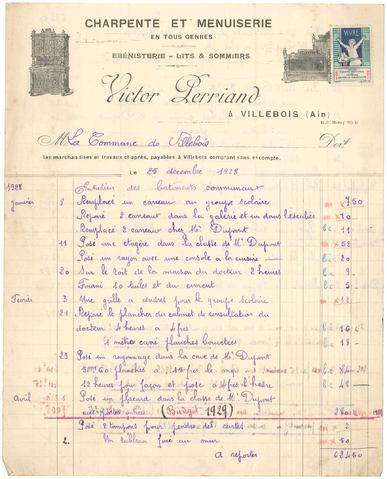 CHARPENTE ET MENUISERIE
EN TOUS GENRES
ÉBÉNISTERIE - LITS & SOMMIERS
VIVRE
Victor Perriand
à VILLEBOIS (Ain)
M La Commune de Villebois Doit
Les marchandises et travaux ci-après, payables à Villebois comptant sans escompte.
Le 26 décembre 1928
1928 Entretien des batiments communaux
Janvier 8 Remplacé un carreau au groupe scolaire 7 50
Réparé 2 carreaux dans la galerie et un dans l'escalier 10
Remplacé 2 carreaux chez Mr Dupont 11
11 Posé une étagère dans la classe de Mr Dupont 58
Posé un rayon avec une console à la cuisine 20
20 Sur le toit de la maison du docteur 2 heures 9
Fourni 10 tuiles et du ciment 5
Février 3 Une grille à cendres pour le groupe scolaire 18
21 Réparé le plancher du cabinet de consultation du
docteur 4 heures à 4 frs 16
4 mètres carré planches bouvetées 18
29 Posé un rayonnage dans la cave de Mr Dupont
planches le mq 84
12 heures pour façon et pose à 4 frs l'heure 48
Avril 1 Posé un placard dans la classe de Mr Dupont
(Budget 1929) 280
Posé 2 tampons pour pendre des cartes 2
2. Un tableau fixé au mur 50
A reporter 624 50